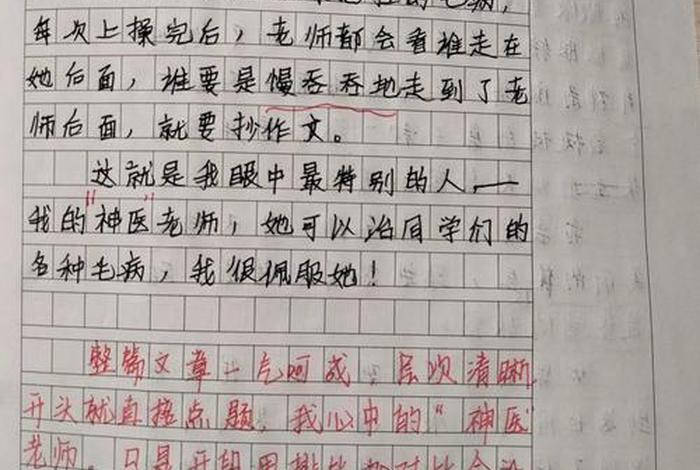 的毛病，
每次上操完后，老师都会看谁走在
她后面，谁要是慢吞吞地走到了老
师后面，就要抄作文。
这就是我眼中最特别的人——
我的"神医"老师，她可以治同学们的
各种毛病，我很佩服她！
整篇文章一气呵成，层次清晰，
开头就直接点题，我心中的"神医"
老师。只是开段用排比